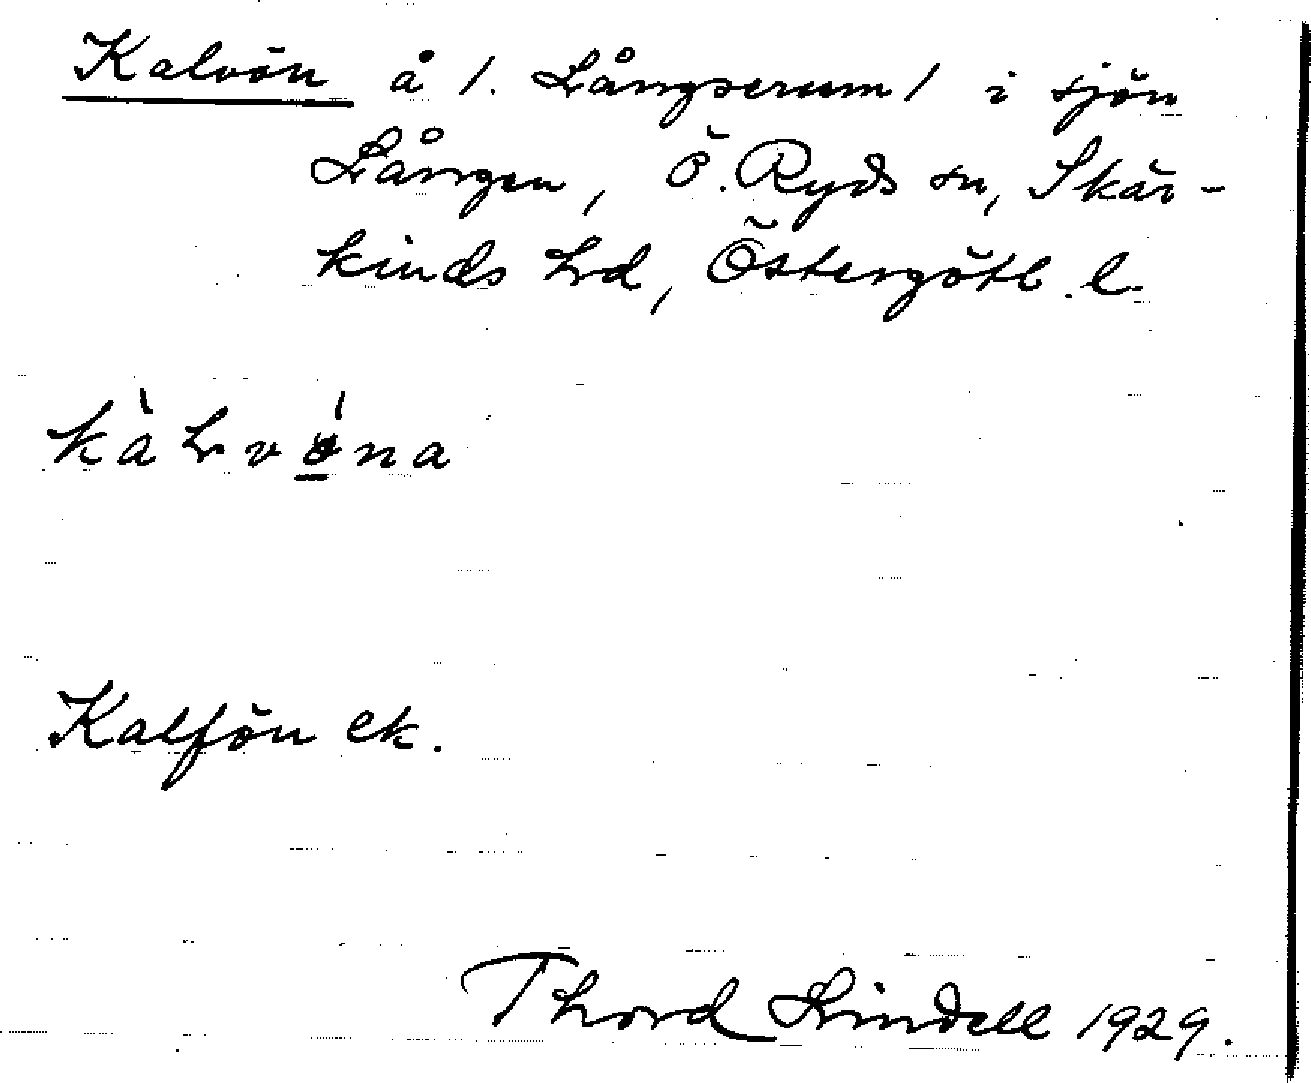 Kalvön å /. Långserum / i sjön
Lången, Ö. Ryds sn, Skär-
kinds hd, Östergötl. l.
kàLvǿna
Kalfön ek.
Thord Lindell 1929.